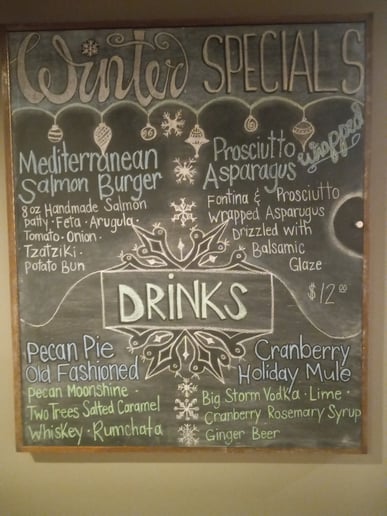 Winter SPECIALS
Mediterranean
Salmon Burger
8oz Handmade Salmon
patty · Feta · Arugula ·
Tomato · Onion ·
Tzatziki ·
Potato Bun
Prosciutto
wrapped
Asparagus
Fontina & Prosciutto
wrapped Asparugus
Drizzled with
Balsamic
Glaze
$12.00
DRINKS
Pecan Pie
Old Fashioned
Pecan Moonshine ·
Two Trees Salted Caramel
Whiskey · Rumchata
Cranberry
Holiday Mule
Big Storm Vodka · Lime ·
Cranberry Rosemary Syrup
Ginger Beer